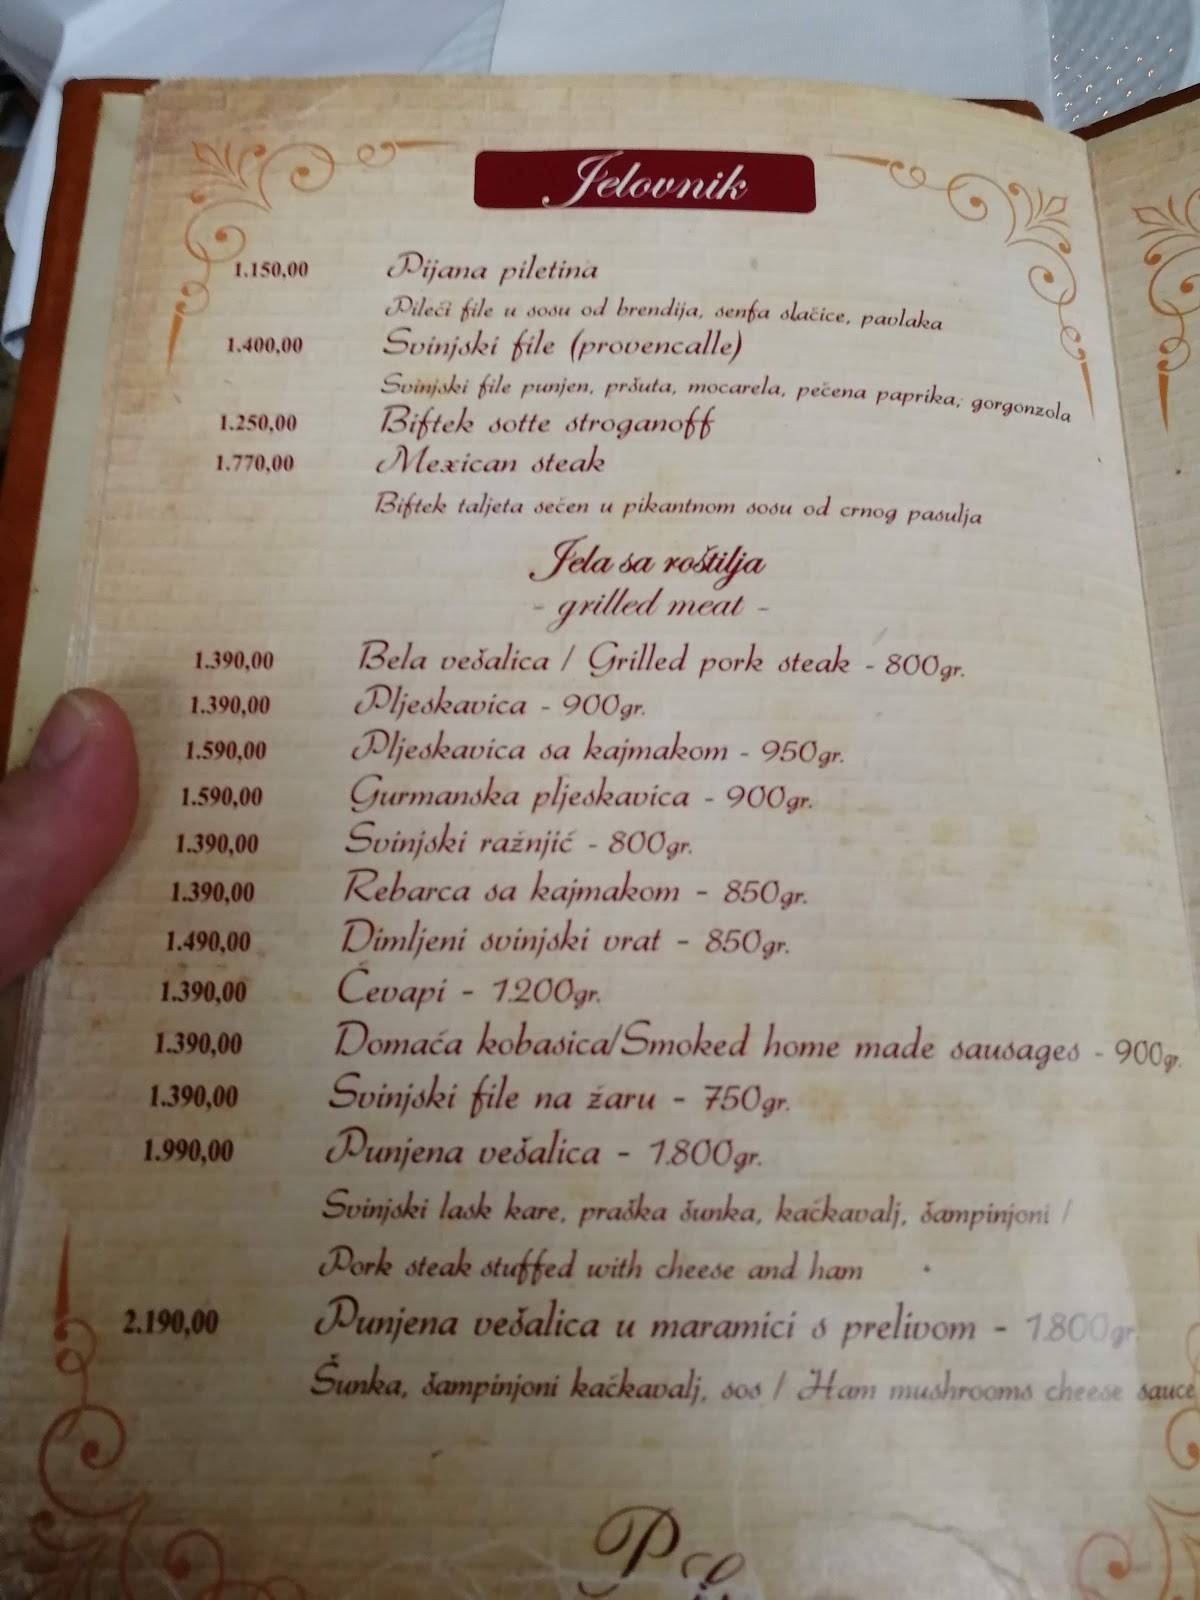 Jelovnik
1.150,00 Pijana piletina
Pileći file u sosu od brendija, senfa slačice, pavlaka
1.400,00 Svinjski file (provencalle)
Svinjski file punjen, pršuta, mocarela, pečena paprika, gorgonzola
1.250,00 Biftek sotte stroganoff
1.770,00 Mexican steak
Biftek taljeta sečen u pikantnom sosu od crnog pasulja
Jela sa roštilja
- grilled meat -
1.390,00 Bela vešalica / Grilled pork steak - 800gr.
1.390,00 Pljeskavica - 900gr.
1.590,00 Pljeskavica sa kajmakom - 950gr.
1.590,00 Gurmanska pljeskavica - 900gr.
1.390,00 Svinjski ražnjić - 800gr.
1.390,00 Rebarca sa kajmakom - 850gr.
1.490,00 Dimljeni svinjski vrat - 850gr.
1.390,00 Ćevapi - 1.200gr.
1.390,00 Domaća kobasica/Smoked home made sausages - 900gr.
1.390,00 Svinjski file na žaru - 750gr.
1.990,00 Punjena vešalica - 1.800gr.
Svinjski lask kare, praška šunka, kačkavalj, šampinjoni /
Pork steak stuffed with cheese and ham
2.190,00 Punjena vešalica u maramici s prelivom - 1.800gr
Šunka, šampinjoni kačkavalj, sos / Ham mushrooms cheese sauce